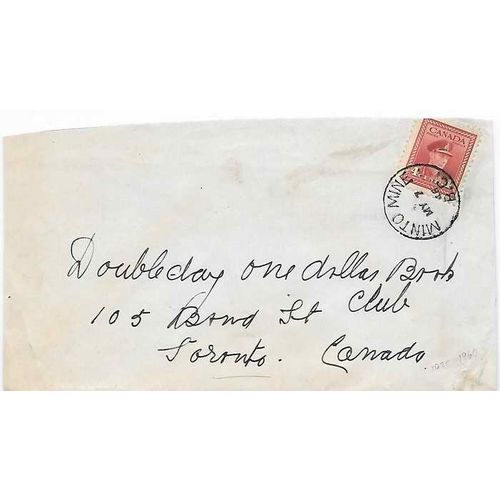 CANADA
4
MINTO MINE
B.C.
MY 2
Doubleday one dollar Book
Club
105 Bond St
Toronto. Canada
1960